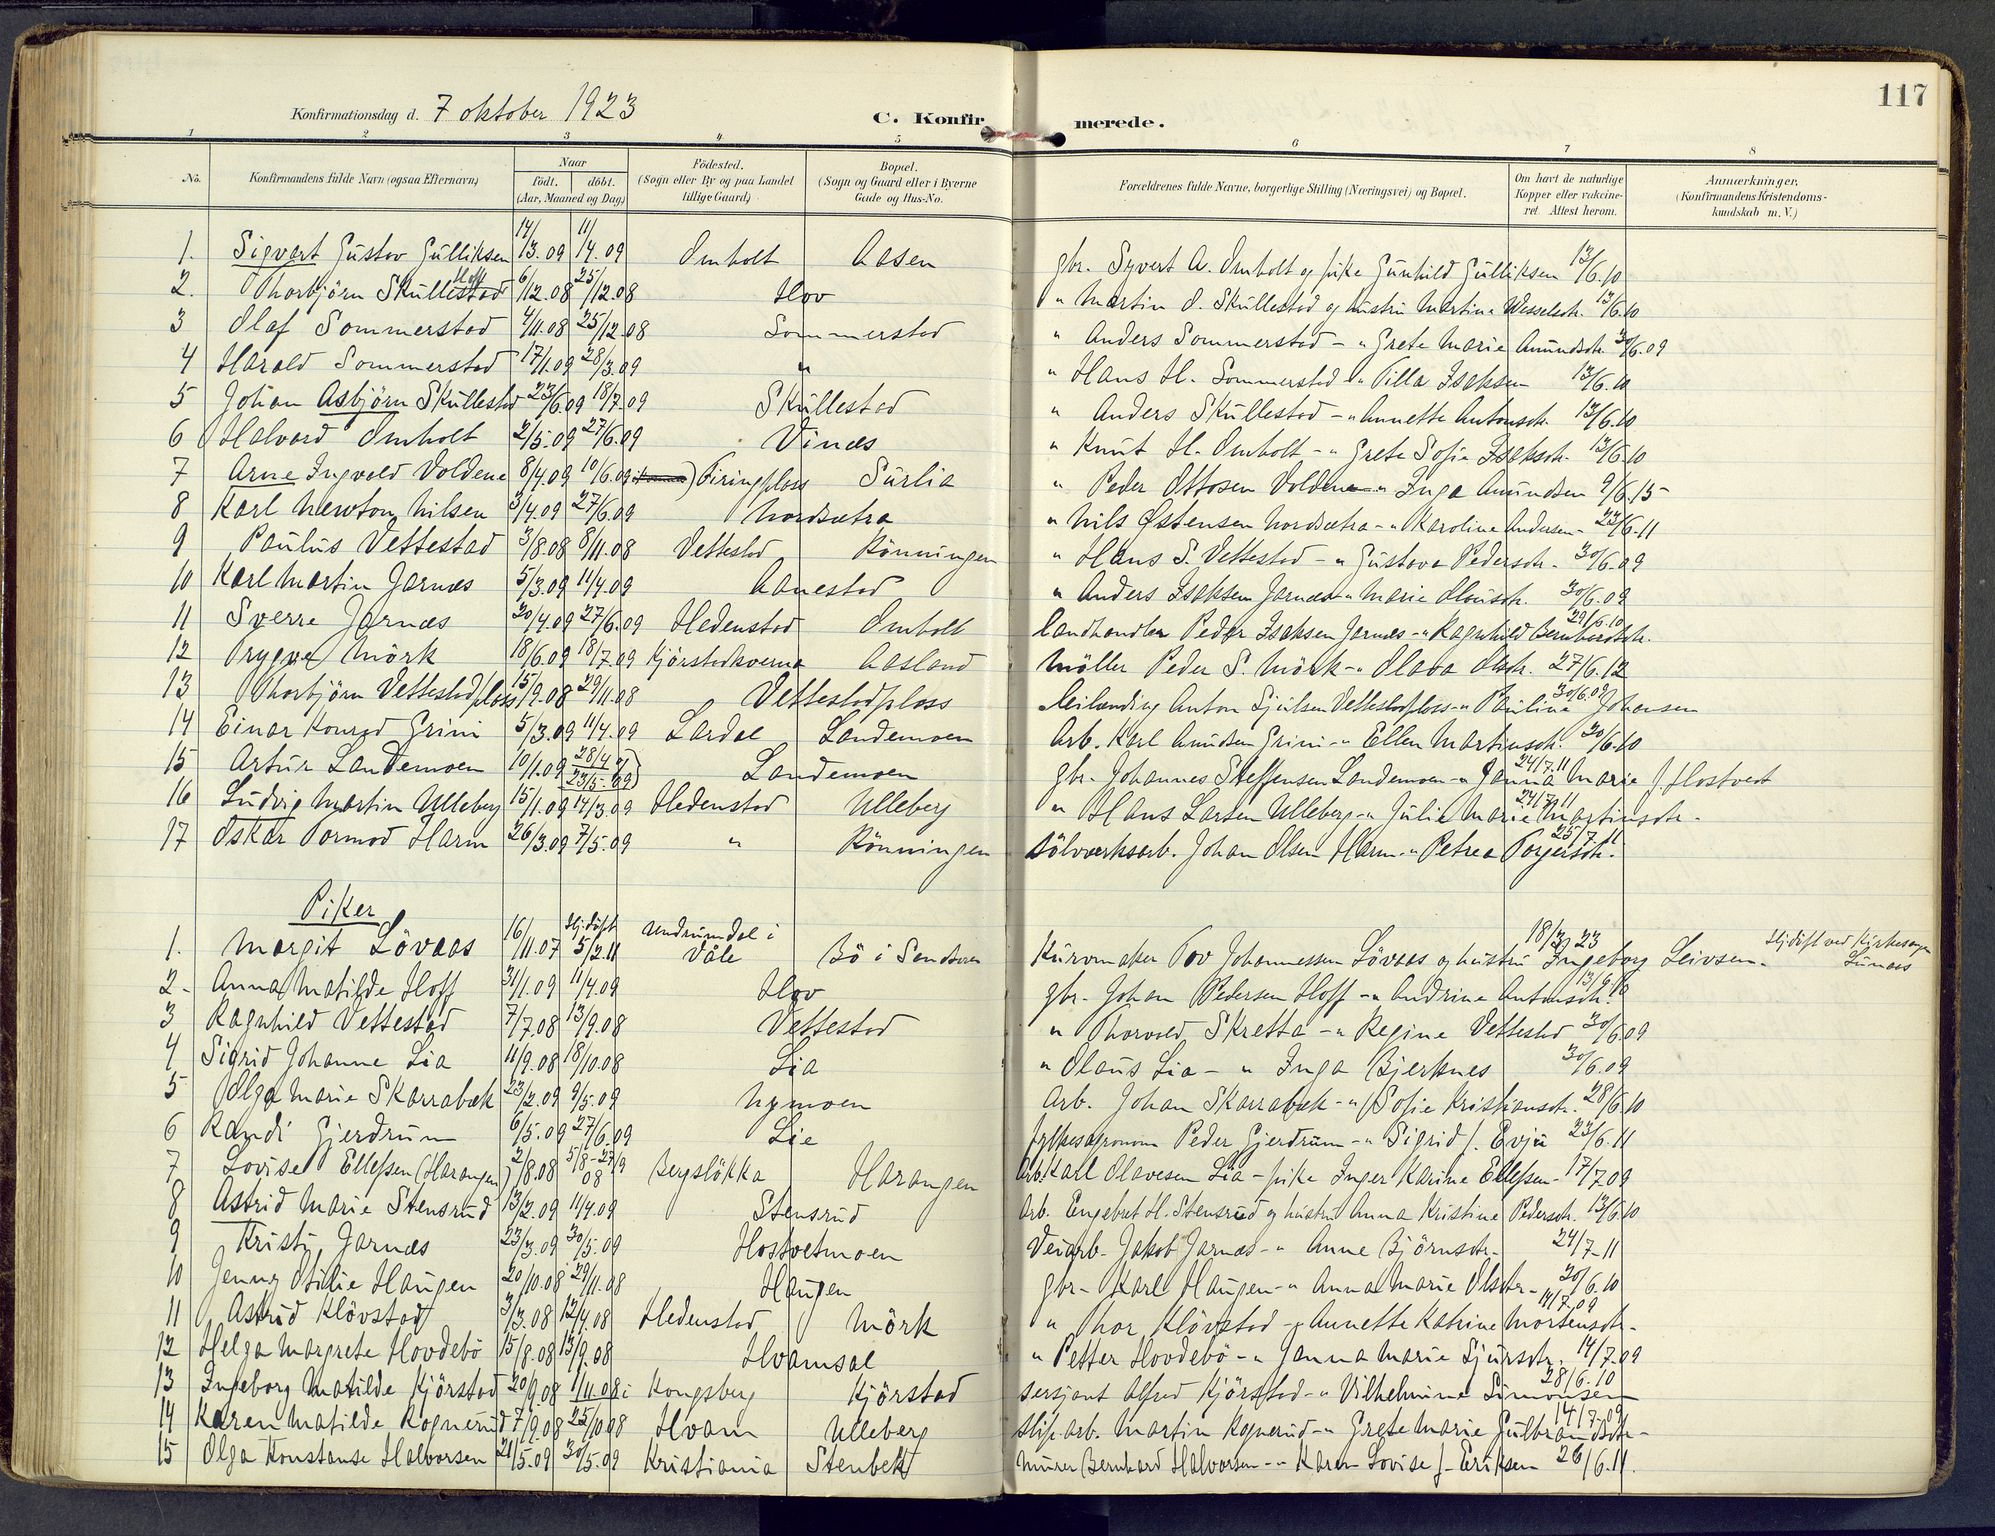 117
Konfirmationsdag d. 7 oktober 1923 C. Konfirmerede.
1 2 3 4 5 6 7 8
No. Konfirmandens fulde Navn (ogsaa Efternavn) Naar födt. döbt. (Aar, Maaned og Dag) Födested. (Sogn eller By og paa Landet tillige Gaard) Bopæl. (Sogn og Gaard eller i Byerne Gade og Hus-No. Forældrenes fulde Navne, borgerlige Stilling (Næringsvei) og Bopæl. Om havt de naturlige Kopper eller vaccineret Attest herom. Anmærkninger. (Konfirmandens Kristendomskundskab m. V.)
1. Sigvart Gustav Gulliksen 14/3.09 11/4.09 Omholt Aasen gbr. Syvert A. Omholt og pike Gunhild Gulliksen 13/6.10
2. Thorbjörn Skullestad Hoff 6/12.08 25/12.08 Hov " Martin O. Skullestad og hustru Martine Wesselsdtr. 13/6.10
3 Olaf Sommerstad 4/11.08 25/12.08 Sommerstad " Anders Sommerstad - " Grete Marie Amundsdtr. 30/6.09
4 Harald Sommerstad 17/1.09 28/3.09 " " Hans H. Sommerstad " Tilla Isaksen 13/6.10
5 Johan Asbjörn Skullestad 23/6.09 18/7.09 Skullestad " Anders Skullestad - " Annette Antonsdtr. 13/6.10
6 Halvard Omholt 2/5.09 27/6.09 Vinæs " Knut H. Omholt - " Grete Sofie Isaksdtr. 13/6.10
7 Arne Ingvald Voldene 8/4.09 10/6.09 Firingplass Surlia " Peder Ottosen Voldene " Inga Amundsen 9/6.15
8 Karl Newton Nilsen 3/4.09 27/6.09 Nordsætra " Nils Østensen Nordsætra - " Karoline Andersen - 23/6.11
9 Paulus Vettestad 3/8.08 8/11.08 Vettestad Rönningen " Hans S. Vettestad - " Gustava Pedersdtr. 30/6.09
10 Karl Martin Jarnæs 5/3.09 11/4.09 Aanestad " Anders Isaksen Jarnæs " Marie Olausdtr. 30/6.09
11 Sverre Jarnæs 20/4.09 27/6.09 Hedenstad Omholt Landhandler Peder Isaksen Jarnæs - " Ragnhild Bernhardsdtr. 29/6.10
12 Trygve Mörk 18/6.09 18/7.09 Kjörstadkverna Aasland Möller Peder S. Mörk - " Olava Olsdtr. 27/6.12
13 Thorbjörn Vettestadplass 15/9.08 29/11.08 Vettestadplass Leilænding Anton Sjulsen Vettestadplass - " Pauline Johansen 30/6.09
14 Einar Konrad Grini 5/3.09 11/4.09 Lardal Landemoen Arb. Karl Amundsen Grini - " Ellen Martinsdtr. 30/6.10
15 Artur Landemoen 10/1.09 28/4 23/5-09 Landemoen gbr. Johannes Steffensen Landemoen - " Janna Marie J. Hostvedt 24/7.11
16 Ludvig Martin Ulleberg 15/1.09 14/3.09 Hedenstad Ulleberg " Hans Larsen Ulleberg - " Julie Marie Martinsdtr. 24/7.11
17 Oskar Tormod Harm 26/3.09 7/5.09 " Rönningen Sölvverksarb. Johan Olsen Harm - " Petrea Torgersdtr. 25/7.11
Piker
1. Margit Lövaas 16/11.07 Hj.döpt 5/2.11 Undrumdal i Våle Bö i Sandsvær Kurvmaker Tov Johannessen Lövaas og hustru Ingeborg Leivsen. 18/3 23 Hj.döpt ved Kirkesanger Lunaas
2. Anna Matilde Hoff 31/1.09 11/4.09 Hov gbr. Johan Pedersen Hoff - " Andrine Antonsdtr. 13/6.10
3 Ragnhild Vettestad 7/7.08 13/9.08 Vettestad " Thorvald Skretta - " Regine Vettestad 30/6.09
4 Sigrid Johanne Lia 11/9.08 18/10.08 Lia " Olaus Lia - " Inga Bjerknes 30/6.09
5 Olga Marie Skarrabæk 23/2.09 9/5.09 Nymoen Arb. Johan Skarrabæk - " Sofie Kristiansdtr. 28/6.10
6 Randi Gjerdrum 6/5.09 27/6.09 Lie fylkesagronom Peder Gjerdrum - " Sigrid f. Evju 23/6.11
7 Lovise Ellefsen (Harangen) 2/8.08 5/8-27/9 08 Bergslökka Harangen Arb. Karl Olavesen Lia - pike Inger Karine Ellefsen - 17/7.09
8 Astrid Marie Stensrud 13/2.09 11/4.09 Stensrud Arb. Engebret H. Stensrud og hustru Anna Kristine Pedersdtr. 13/6.10
9 Kristi Jarnæs 23/3.09 30/5.09 Hostvetmoen Veiarb. Jakob Jarnæs - " Anne Björnsdtr - 24/7-11
10 Jenny Otilie Haugen 20/10.08 29/11.08 Haugen gbr - Karl Haugen - " Anna Marie Olsdtr - 30/6.10
11 Astrid Klövstad 3/3.08 12/4.08 Hedenstad Mörk " Thor Klövstad - " Annette Katrine Mortensdtr - 14/7.09
12 Helga Margrete Hovdebö 15/8.08 13/9.08 Hvamsal " Petter Hovdebö - " Janna Marie Sjursdtr. 14/7.09
13 Ingeborg Matilde Kjörstad 20/9.08 1/11.08 i Kongsberg Kjörstad sersjant Alfred Kjörstad - " Vilhelmine Simonsen 28/6.10
14 Karen Matilde Rognerud 7/9.08 25/10.08 Hvam Ulleberg slip.arb. Martin Rognerud - " Grete Marie Gulbrandsdtr - 14/7.09
15 Olga Konstanse Halvorsen 21/5.09 30/5.09 Kristiania Stenbek Murer Bernhard Halvorsen - " Karen Lovise f. Eriksen 26/6.11.